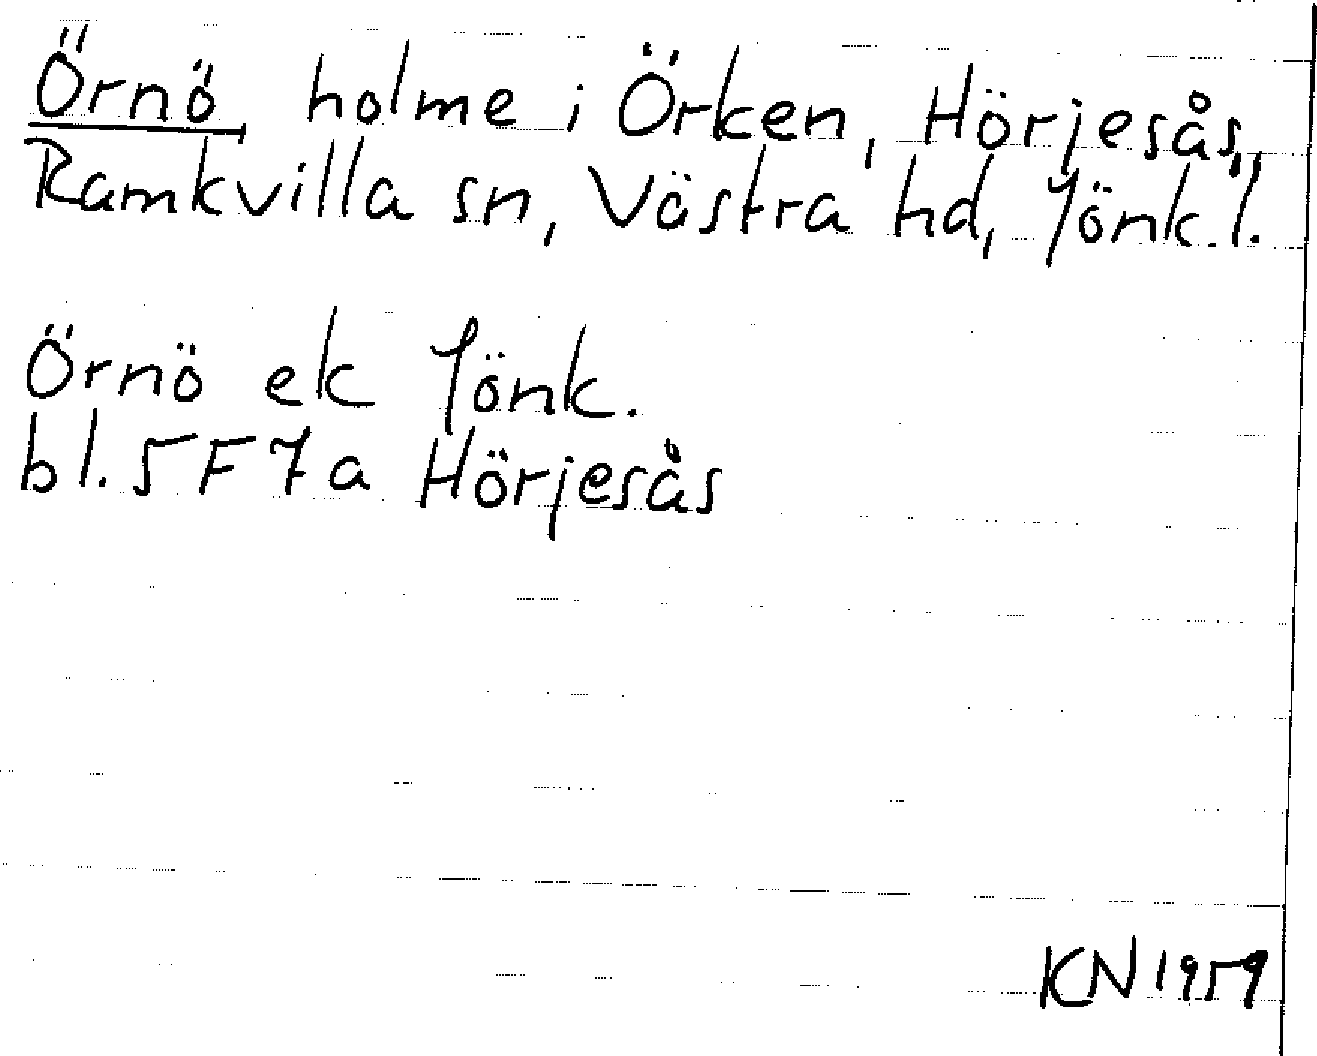 Örnö, holme i Örken, Hörjesås,
Ramkvilla sn, Västra hd, Jönk. l.
Örnö ek Jönk.
bl. 5F7a Hörjesås
KN 1959